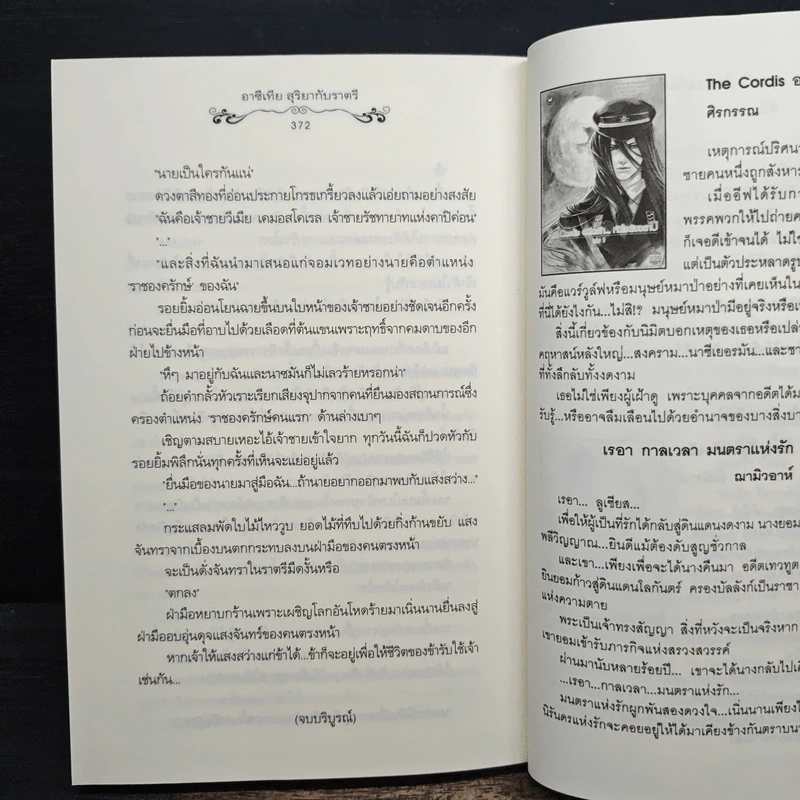 อาซีเทีย สุริยากับราตรี
372
"นายเป็นใครกันแน่"
ดวงตาสีทองที่อ่อนประกายโกรธเกรี้ยวลงแล้วเอ่ยถามอย่างสงสัย
"ฉันคือเจ้าชายวีเมีย เคมอสโคเรล เจ้าชายรัชทายาทแห่งคาปิค่อน"
"..."
"และสิ่งที่ฉันนำมาเสนอแก่จอมเวทอย่างนายคือตำแหน่ง
'ราชองครักษ์' ของฉัน"
รอยยิ้มอ่อนโยนฉายขึ้นบนใบหน้าของเจ้าชายอย่างชัดเจนอีกครั้ง
ก่อนจะยื่นมือที่อาบไปด้วยเลือดที่ต้นแขนเพราะฤทธิ์จากคมดาบของอีก
ฝ่ายไปข้างหน้า
"หึๆ มาอยู่กับฉันและนาซมันก็ไม่เลวร้ายหรอกน่า"
ถ้อยคำกลั้วหัวเราะเรียกเสียงจุปากจากคนที่ยืนมองสถานการณ์ซึ่ง
ครองตำแหน่ง 'ราชองครักษ์คนแรก' ด้านล่างเบาๆ
เชิญตามสบายเหอะไอ้เจ้าชายเข้าใจยาก ทุกวันนี้ฉันก็ปวดหัวกับ
รอยยิ้มพิลึกนั่นทุกครั้งที่เห็นจะแย่อยู่แล้ว
"ยื่นมือของนายมาสู่มือฉัน...ถ้านายอยากออกมาพบกับแสงสว่าง..."
"..."
กระแสลมพัดใบไม้ไหววูบ ยอดไม้ที่ทึบไปด้วยกิ่งก้านขยับ แสง
จันทราจากเบื้องบนตกกระทบลงบนฝ่ามือของคนตรงหน้า
จะเป็นดั่งจันทราในราตรีมืดงั้นหรือ
"ตกลง"
ฝ่ามือหยาบกร้านเพราะเผชิญโลกอันโหดร้ายมาเนิ่นนานยื่นลงสู่
ฝ่ามืออบอุ่นดุจแสงจันทร์ของคนตรงหน้า
หากเจ้าให้แสงสว่างแก่ข้าได้...ข้าก็จะอยู่เพื่อให้ชีวิตของข้ารับใช้เจ้า
เช่นกัน...
(จบบริบูรณ์)
The Cordis
ศิรกรรณ
เหตุการณ์ปริศนา
ชายคนหนึ่งถูกสังหาร
เมื่ออีฟได้รับกา
พรรคพวกให้ไปถ่ายค
ก็เจอดีเข้าจนได้ ไม่ใช่
แต่เป็นตัวประหลาดรูป
มันคือแวร์วูล์ฟหรือมนุษย์หมาป่าอย่างที่เคยเห็นใน
ที่นี่ได้ยังไงกัน...ไม่สิ!? มนุษย์หมาป่ามีอยู่จริงหรือเ
สิ่งนี้เกี่ยวข้องกับนิมิตบอกเหตุของเธอหรือเปล่า
คฤหาสน์หลังใหญ่...สงคราม...นาซีเยอรมัน...และชา
ที่ทั้งลึกลับทั้งงดงาม
เธอไม่ใช่เพียงผู้เฝ้าดู เพราะบุคคลจากอดีตได้ม
รับรู้...หรืออาจลืมเลือนไปด้วยอำนาจของบางสิ่งบา
เรอา กาลเวลา มนตราแห่งรัก
ฌามิวอาห์
เรอา... ลูเซียส...
เพื่อให้ผู้เป็นที่รักได้กลับสู่ดินแดนงดงาม นางยอม
พลีวิญญาณ...ยินดีแม้ต้องดับสูญชั่วกาล
และเขา...เพียงเพื่อจะได้นางคืนมา อดีตเทวทูต
ยินยอมก้าวสู่ดินแดนโลกันตร์ ครองบัลลังก์เป็นราชา
แห่งความตาย
พระเป็นเจ้าทรงสัญญา สิ่งที่หวังจะเป็นจริงหาก
เขายอมเข้ารับภารกิจแห่งสรวงสวรรค์
ผ่านมานับหลายร้อยปี... เขาจะได้นางกลับไปเคี
...เรอา...กาลเวลา...มนตราแห่งรัก...
มนตราแห่งรักผูกพันสองดวงใจ...เนิ่นนานเพียงใ
นิรันดรแห่งรักจะคอยอยู่ให้ได้มาเคียงข้างกันตราบน